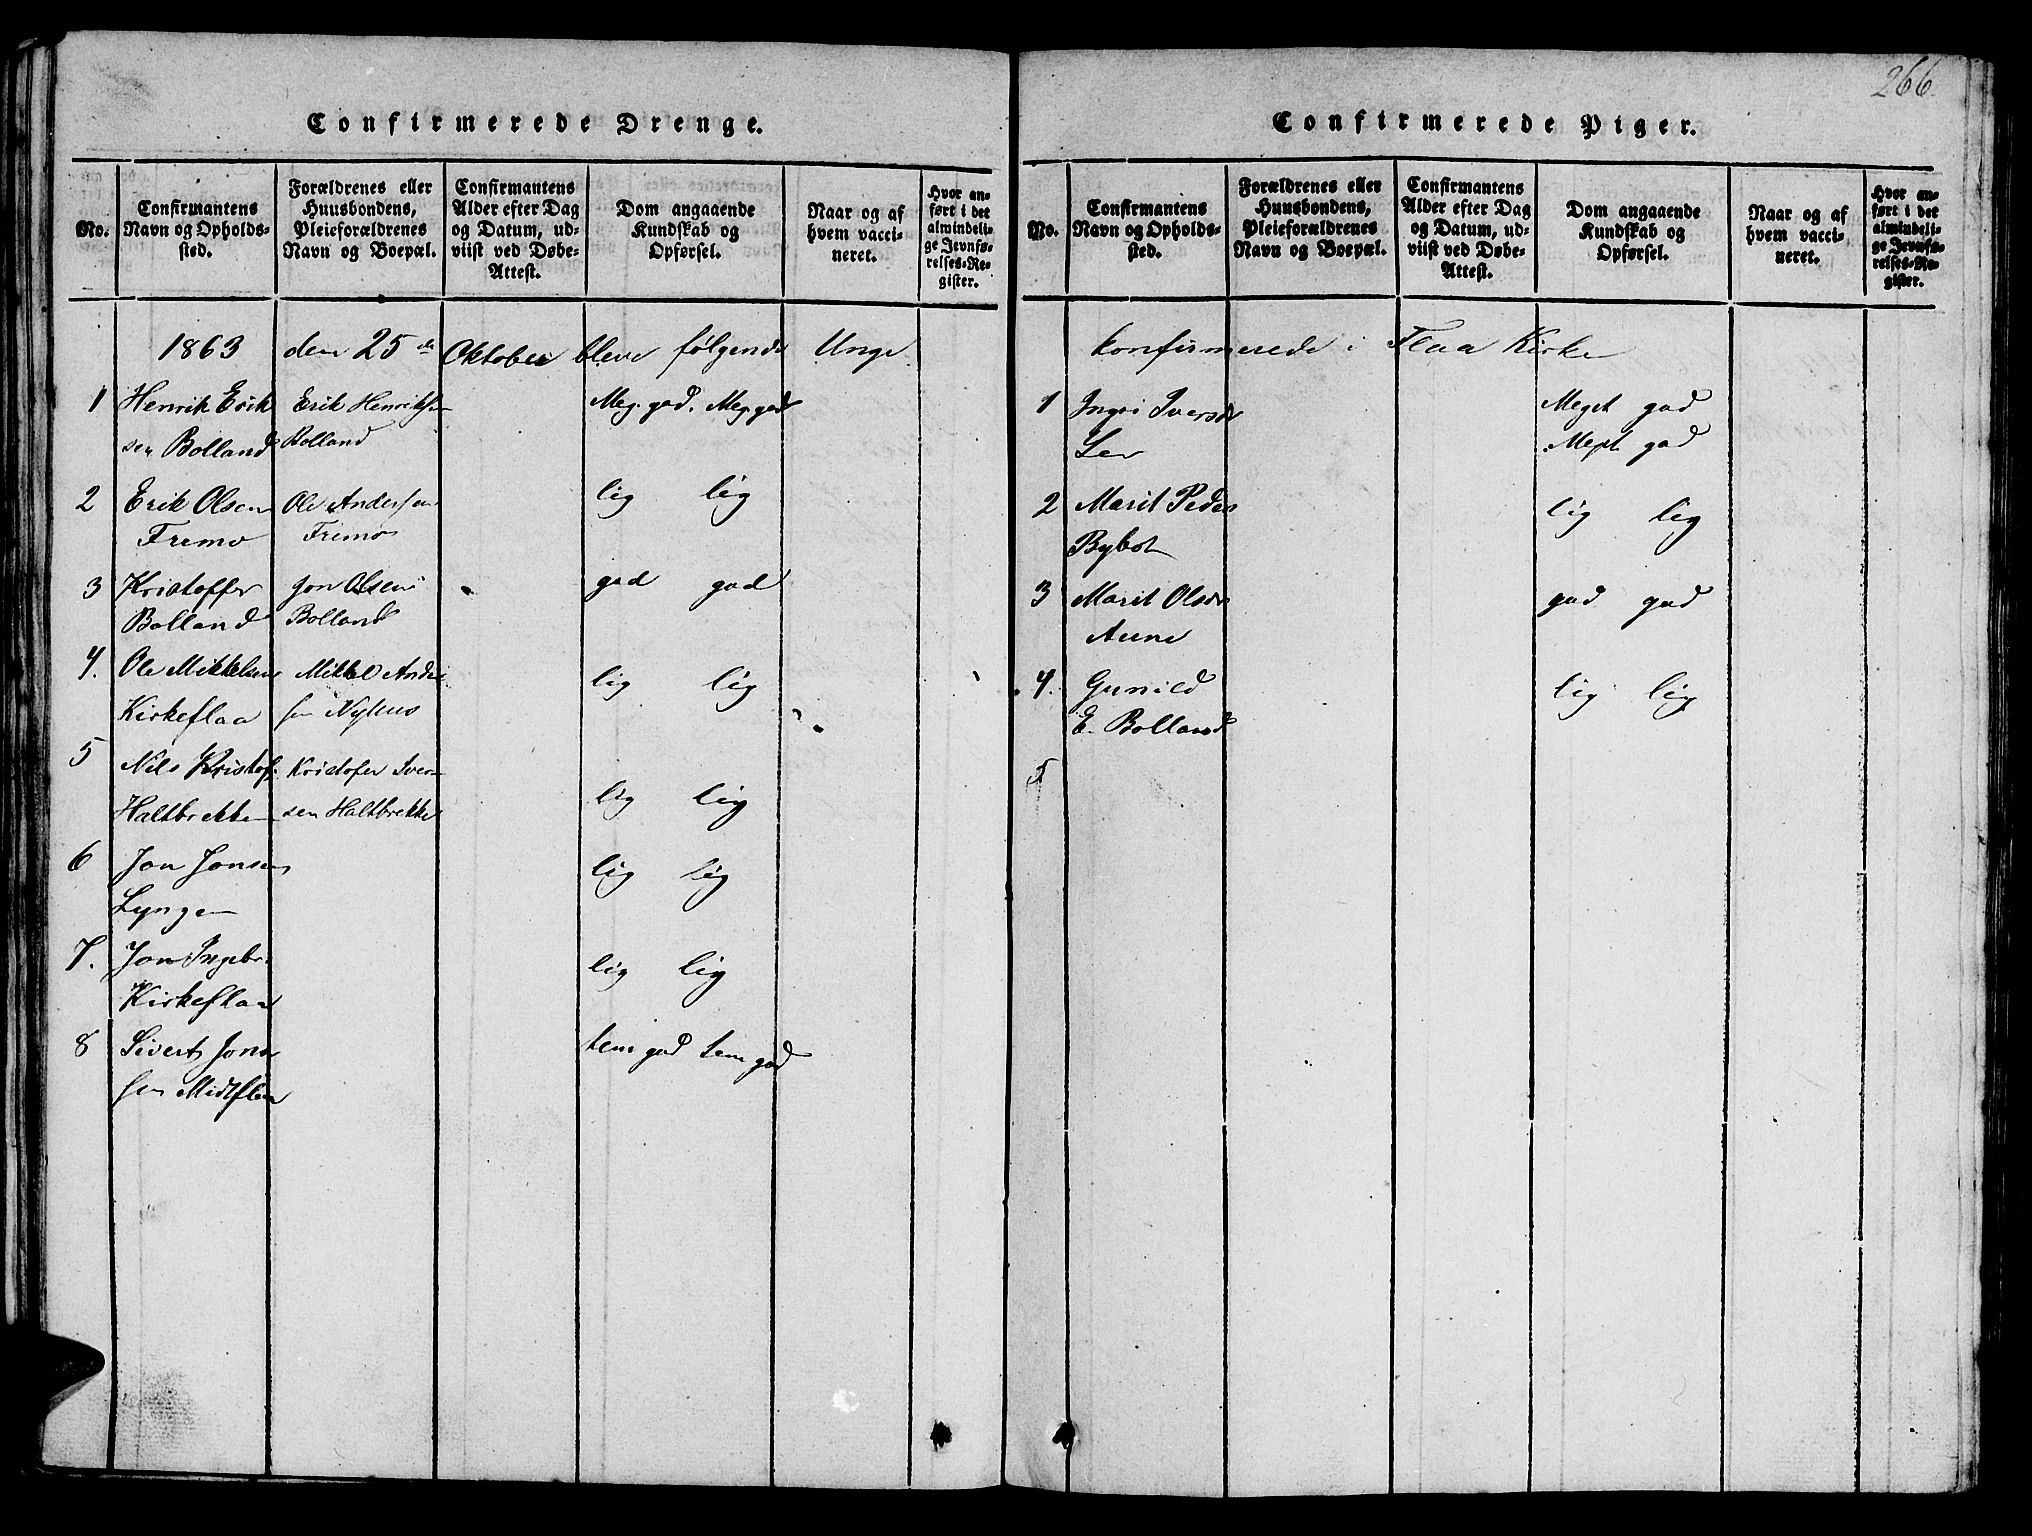 266.
Confirmerede Drenge.
No.
Confirmantens Navn og Opholds-sted.
Forældrenes eller Huusbondens, Pleieforældrenes Navn og Boepæl.
Confirmantens Alder efter Dag og Datum, ud-viist ved Døbe-Attest.
Dom angaaende Kundskab og Opførsel.
Naar og af hvem vacci-neret.
Hvor an-ført i det almindeli-ge Jevnfø-relses-Re-gister.
1863 den 25de Oktober bleve følgende Unge
1 Henrik Erik Erik Henriksen Meg. god. Meg. god
sen Bolland Bolland
2 Erik Olsen Ole Andersen lig lig
Fremo Fremo
3 Kristoffer Jon Olsen god god
Bolland Bolland
4. Ole Mikkelsen Mikkel Ander lig lig
Kirkeflaa sen Nyhus
5 Nils Kristof. Kristofer Iver
Haltbrekken sen Haltbrekke lig lig
6 Jon Jonsen lig lig
Lyngen
7. Jon Ingebr. lig lig
Kirkeflaa
8 Sivert Jon tem god tem god
sen Midtflaa
Confirmerede Piger.
No.
Confirmantens Navn og Opholds-sted.
Forældrenes eller Huusbondens, Pleieforældrenes Navn og Boepæl.
Confirmantens Alder efter Dag og Datum, ud-viist ved Døbe-Attest.
Dom angaaende Kundskab og Opførsel.
Naar og af hvem vacci-neret.
Hvor an-ført i det almindeli-ge Jevnfø-relses-Re-gister.
konfirmerede i Flaa Kirke
1 Ingri Iversd Meget god
Ler Meget god
2 Marit Peders lig lig
Bybot
3 Marit Olsdr god god
Aune
4. Gunild lig lig
E. Bolland
5